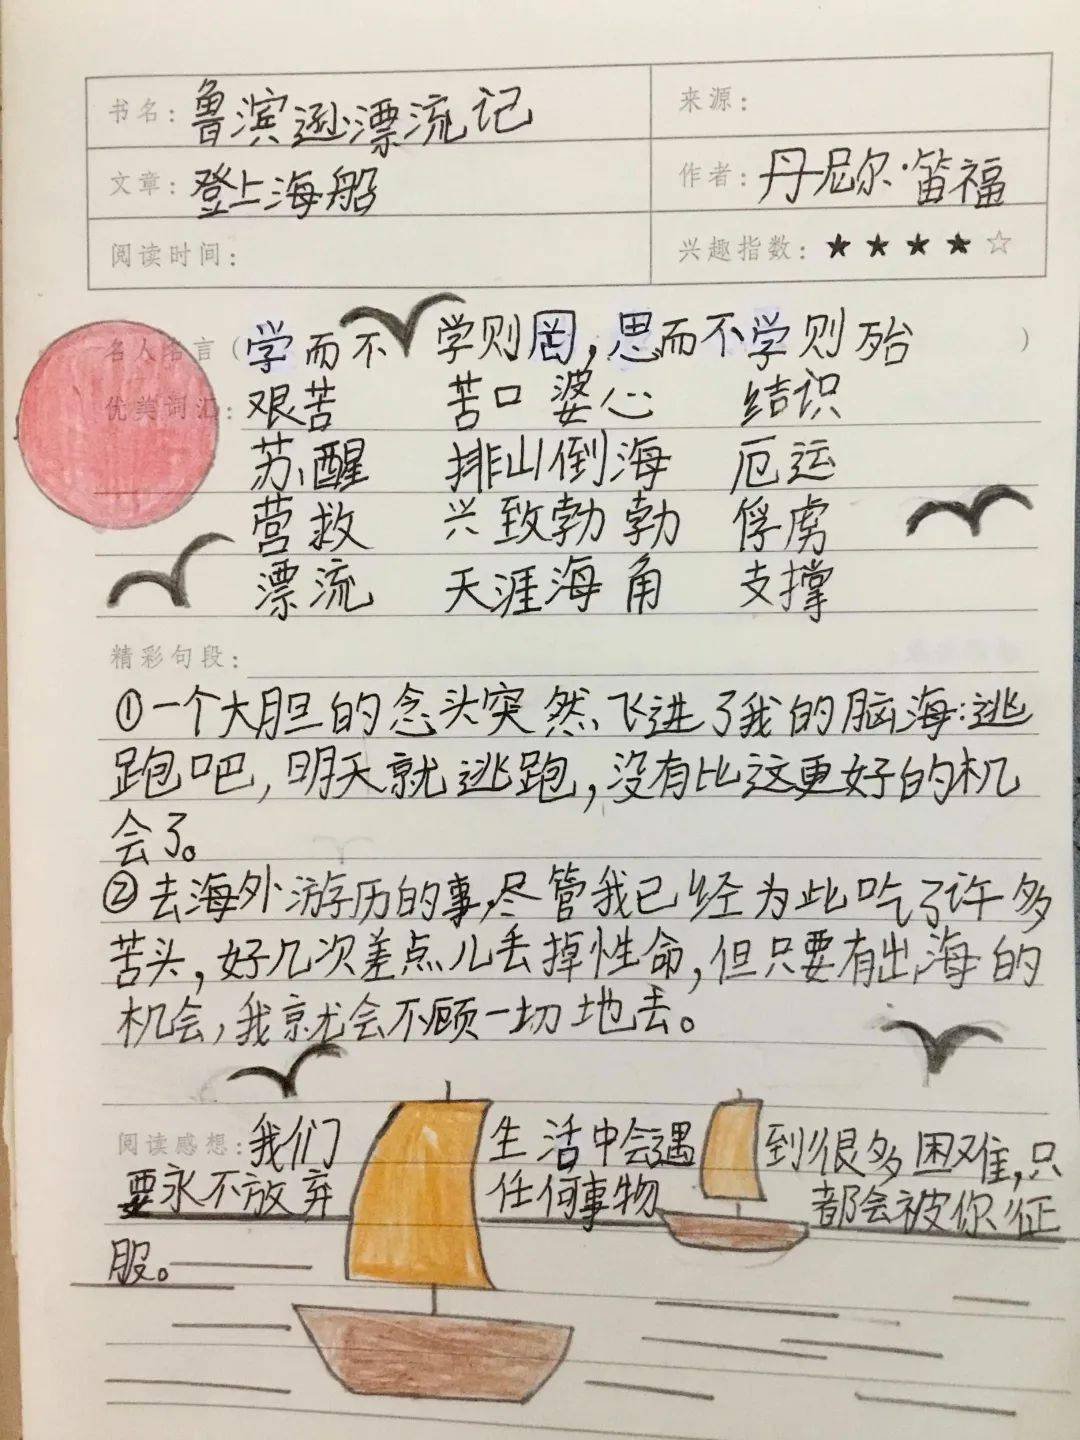 书名:鲁滨逊漂流记 来源:
文章:登上海船 作者:丹尼尔·笛福
阅读时间: 兴趣指数:★★★★☆
名人名言(学而不 学则罔,思而不学则殆)
优美词汇:艰苦 苦口婆心 结识
苏醒 排山倒海 厄运
营救 兴致勃勃 俘虏
漂流 天涯海角 支撑
精彩句段:
①一个大胆的念头突然飞进了我的脑海:逃
跑吧,明天就逃跑,没有比这更好的机
会了。
②去海外游历的事,尽管我已经为此吃了许多
苦头,好几次差点儿丢掉性命,但只要有出海的
机会,我就会不顾一切地去。
阅读感想:我们 生活中会遇 到很多困难,只
要永不放弃 任何事物 都会被你征
服。